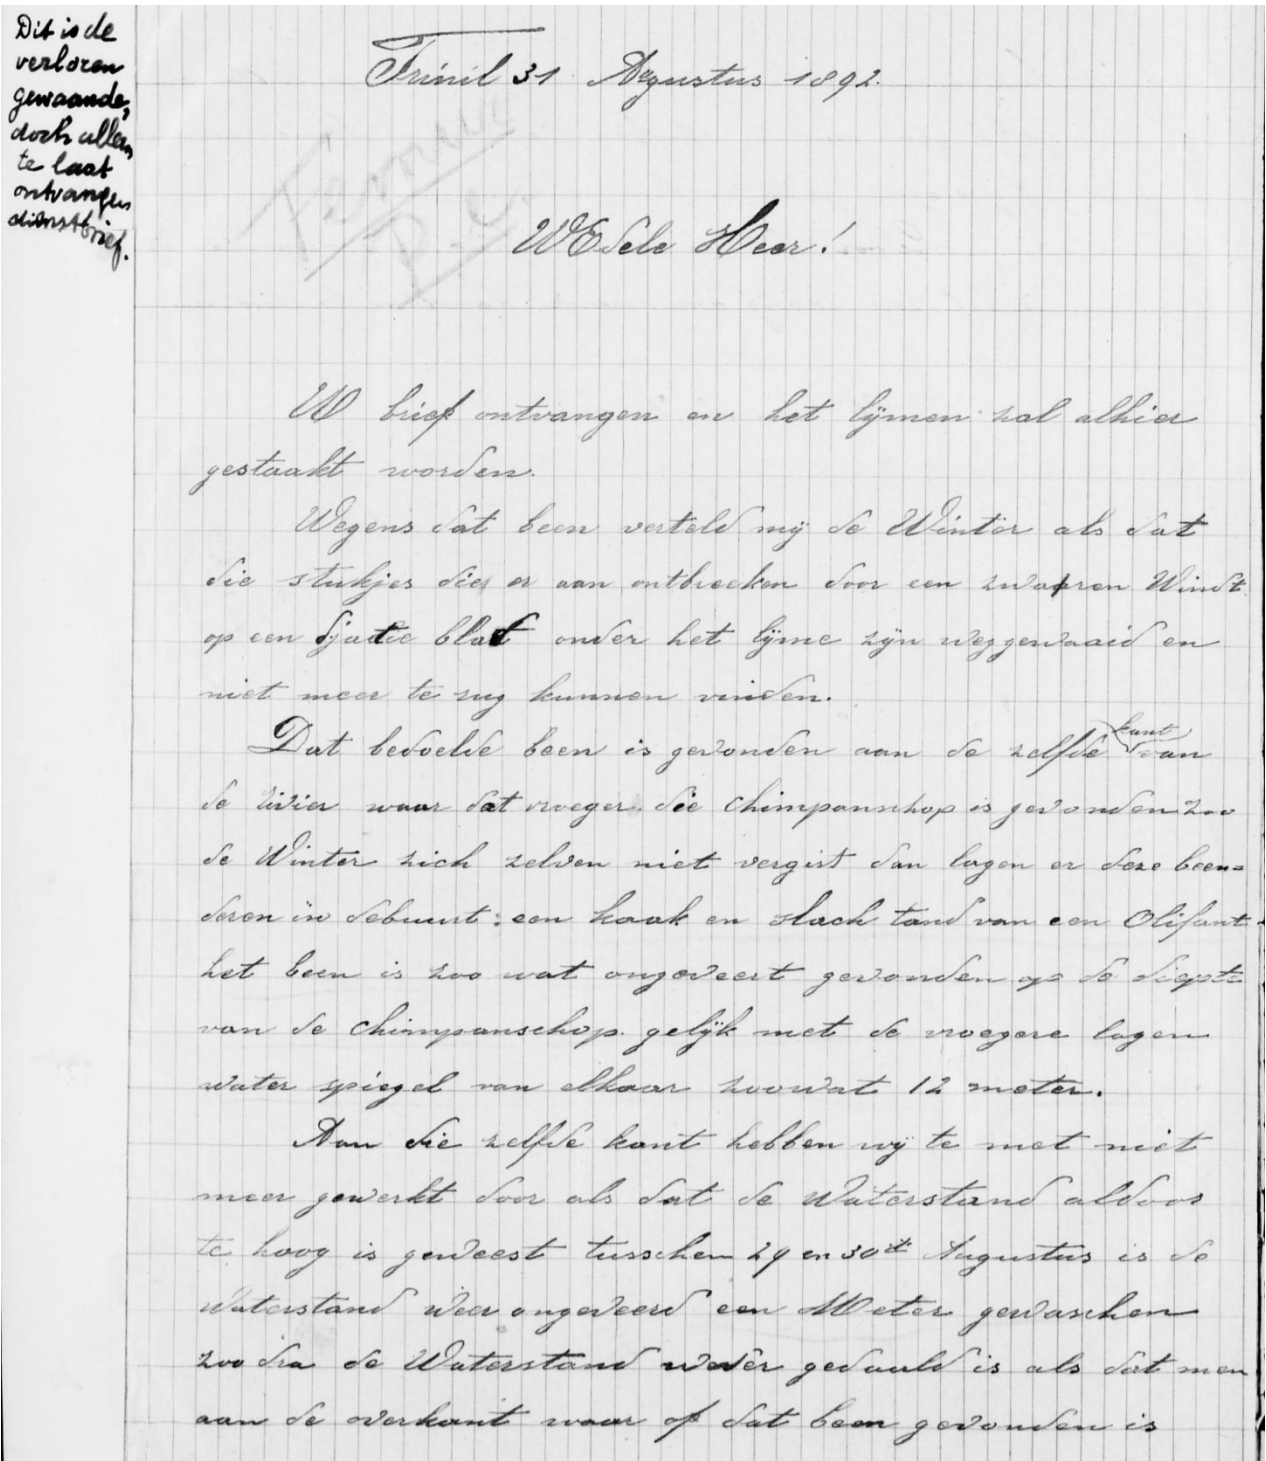 Dit is de
verloren
gewaande,
doch alleen
te laat
ontvangen
dienstbrief.
Trinil 31 Augustus 1892.
Femur
P.e.
WEdele Heer!
UW brief ontvangen en het lijmen zal alhier
gestaakt worden.
Wegens dat been verteld mij de Winter als dat
die stukjes die er aan ontbreeken door een zwaren Windt
op een djatie blat onder het lijme zijn weggewaaid en
niet meer te rug kunnen vinden.
Dat bedoelde been is gevonden aan de zelfde kant van
de rivier waar dat vroeger die chimpanschop is gevonden zoo
de Winter zich zelven niet vergist dan lagen er deze been=
deren in debuurt: een kaak en slach tand van een Olifant
het been is zoo wat ongeveert gevonden op de diepte
van de chimpanschop. gelijk met de vroegere lagen
water spiegel van elkaar zoowat 12 meter.
Aan die zelfde kant hebben wij te met niet
meer gewerkt door als dat de Waterstand aldoor
te hoog is geweest tusschen 29 en 30st Augustus is de
Waterstand weer ongeveerd een Meter gewaschen
zoo dra de Waterstand weder gedaald is als dat men
aan de overkant waar of dat been gevonden is